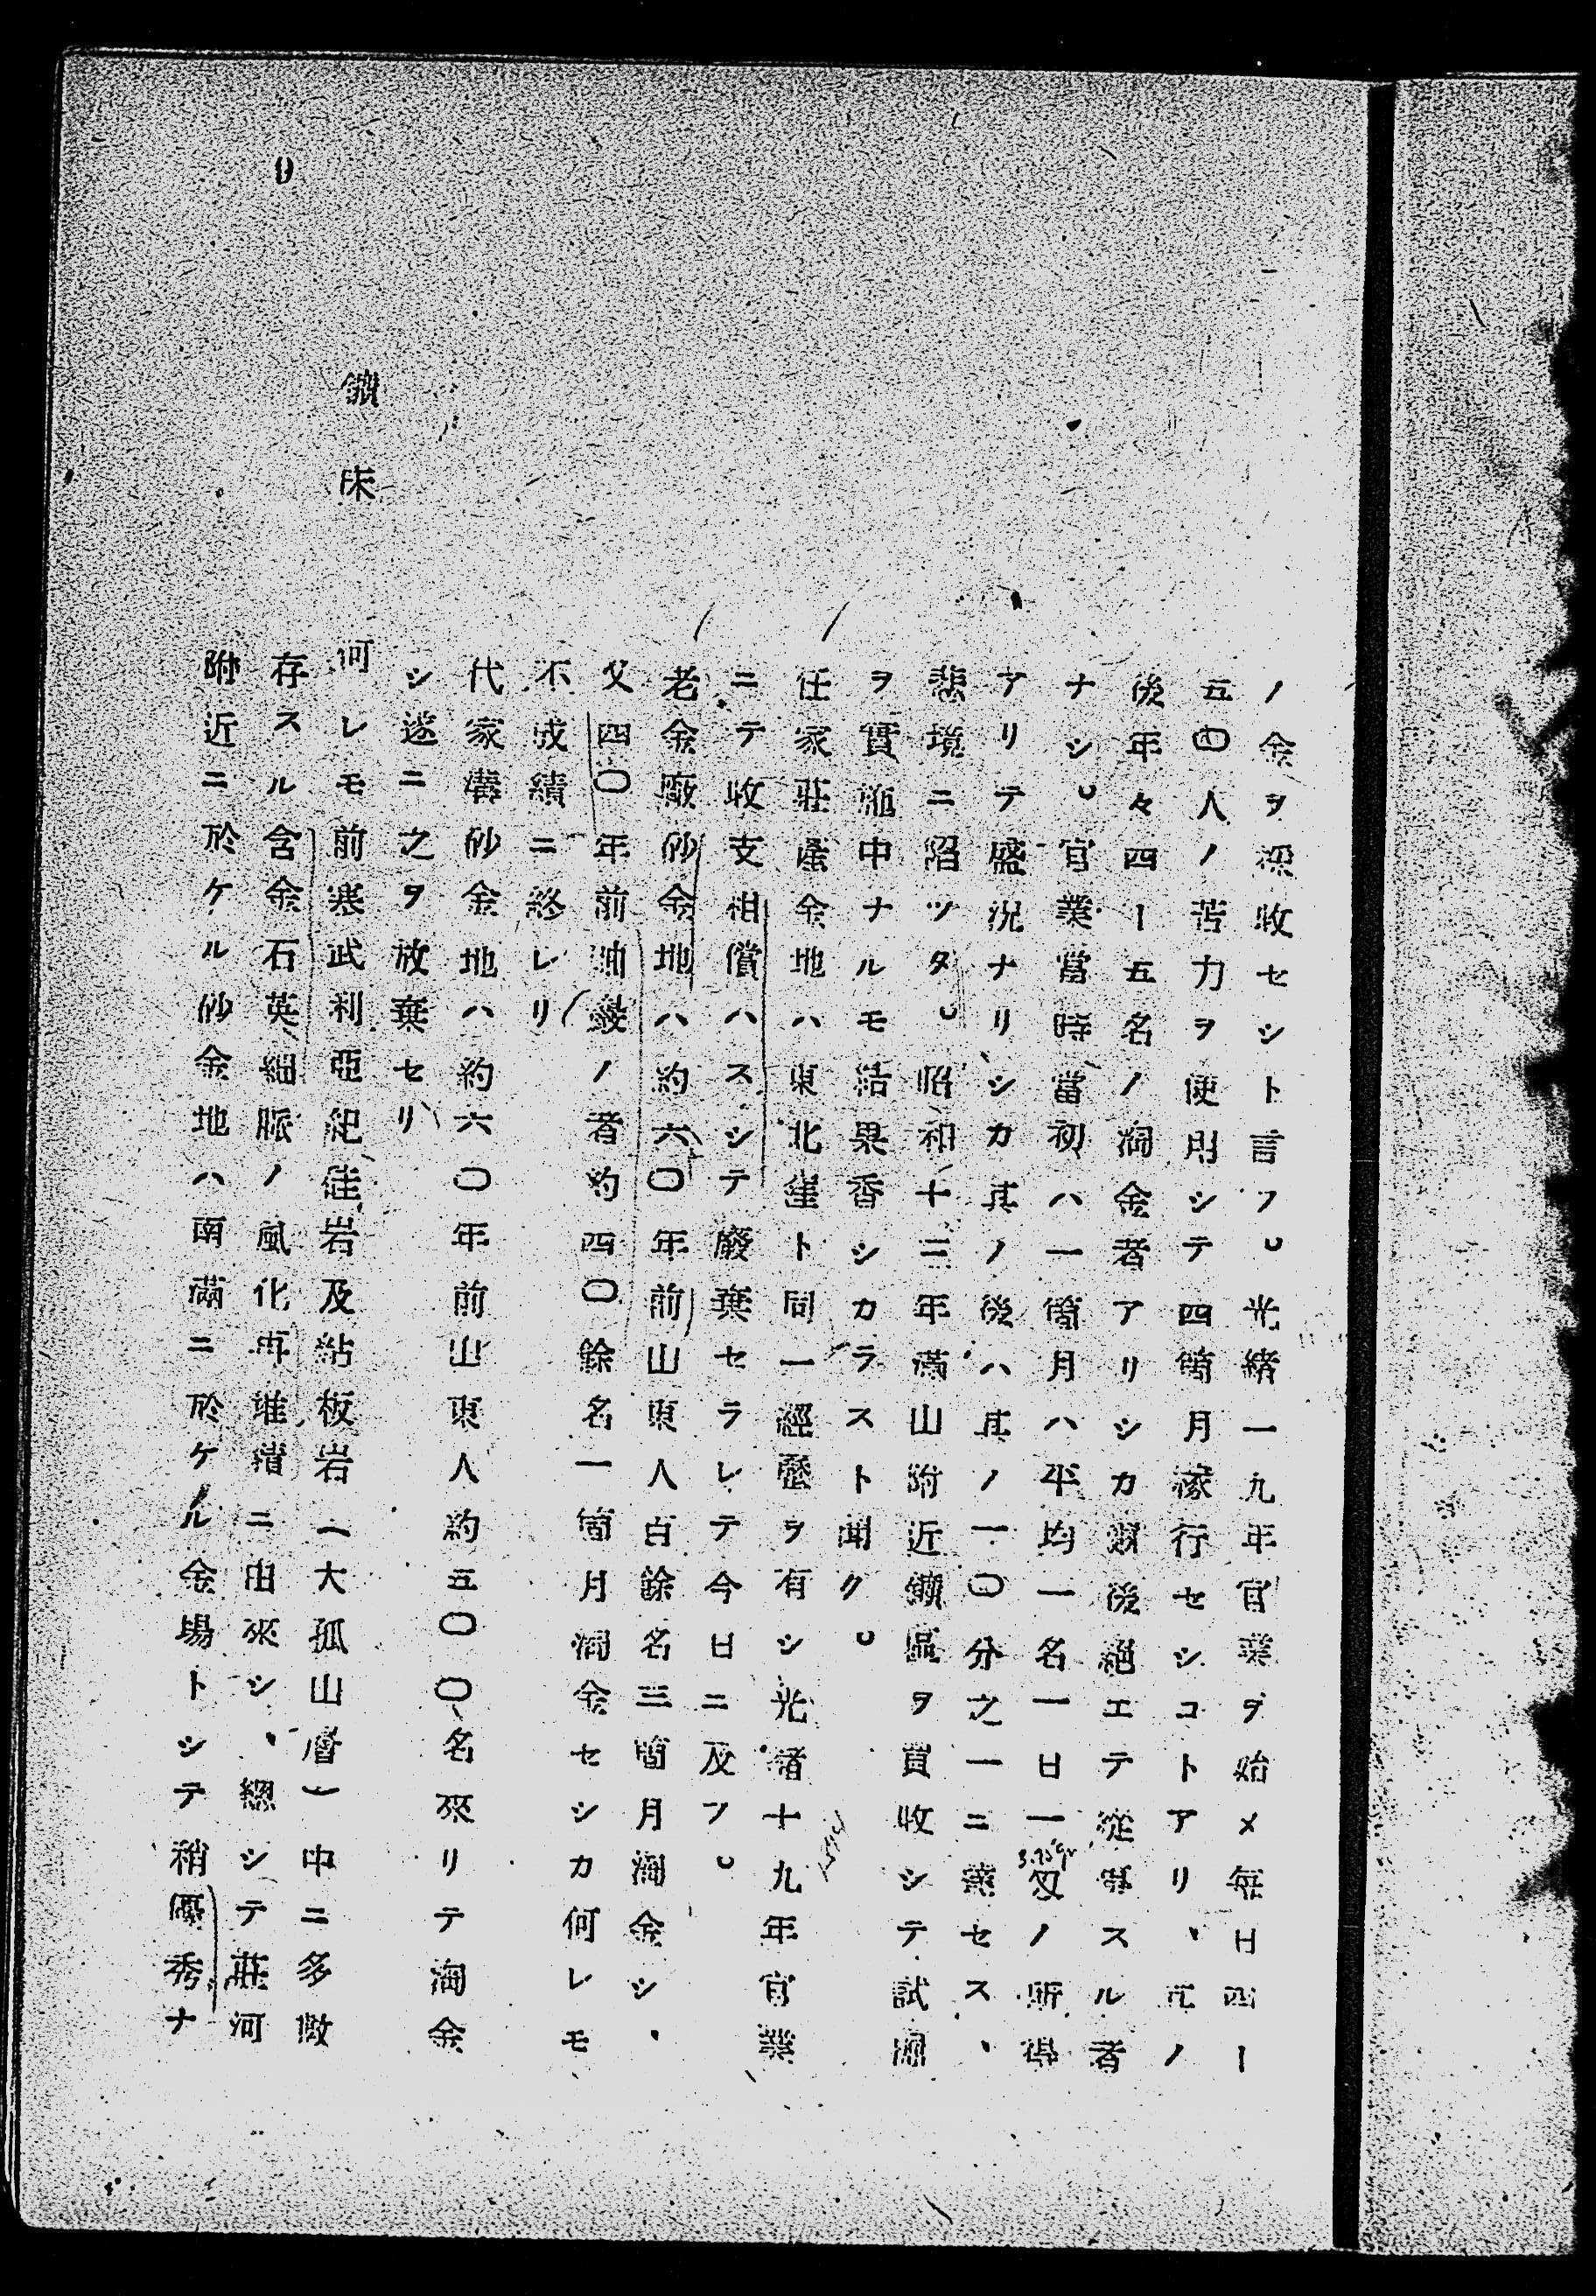 ノ金ヲ採收セシト言フ。光緒一九年官業ヲ始メ每日四ー
五〇人ノ苦力ヲ使用シテ四箇月稼行セシコトアリ、元ノ
後年々四ー五名ノ淘金者アリシカ爾後絕エテ從事スル者
ナシ。官業當時當初ハ一箇月ハ平均一名一日一匁ノ所得
3.75gr
アリテ盛況ナリシカ其ノ後ハ其ノ一〇分之一ニ達セス、
悲境ニ陷ツタ。昭和十二年滿山附近鑛區ヲ買收シテ試淘
ヲ實施中ナルモ結果香シカラスト聞ク。
任家莊產金地ハ東北窪ト同一經歷ヲ有シ光緒十九年官業
ニテ收支相償ハスシテ廢棄セラレテ今日ニ及フ。
老金廠砂金地ハ約六〇年前山東人百餘名三箇月淘金シ、
又四〇年前ノ者約四〇餘名一箇月淘金セシカ何レモ
不成績ニ終レリ
代家溝砂金地ハ約六〇年前山東人約五〇〇名來リテ淘金
シ遂ニ之ヲ放棄セリ
鑛床
何レモ前寒武利亞紀硅岩及粘板岩(大孤山層)中ニ多數
存スル含金石英細脈ノ風化再堆積ニ由來シ、總シテ莊河
附近ニ於ケル砂金地ハ南滿ニ於ケル金場トシテ稍優秀ナ
9